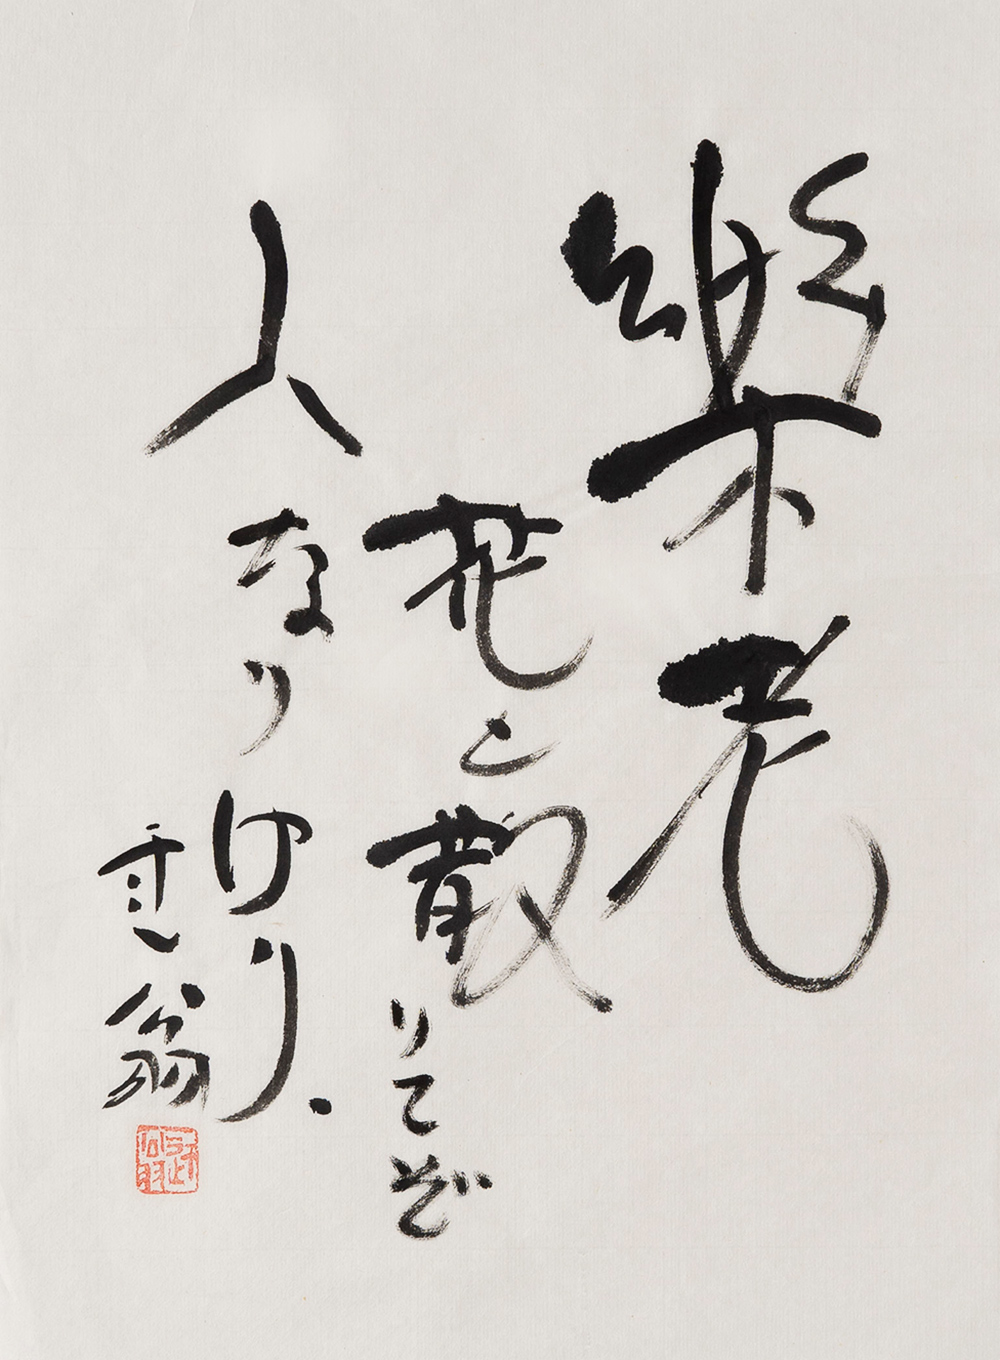 樂老
花と散りてぞ
人なりけり.
雲翁